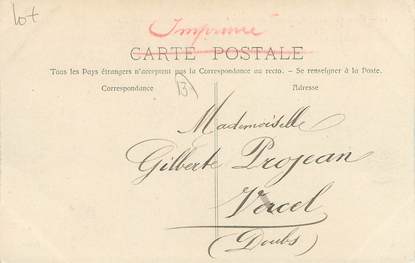 lot
Imprimé
CARTE POSTALE
Tous les Pays étrangers n'acceptent pas la Correspondance au recto. - Se renseigner à la Poste.
Correspondance
Adresse
13
Mademoiselle
Gilberte Projean
Vercel
(Doubs)